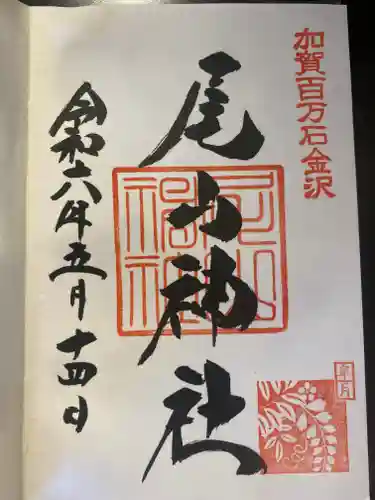 加賀百万石金沢
尾山神社
尾山神社
皐月
令和六年五月十四日